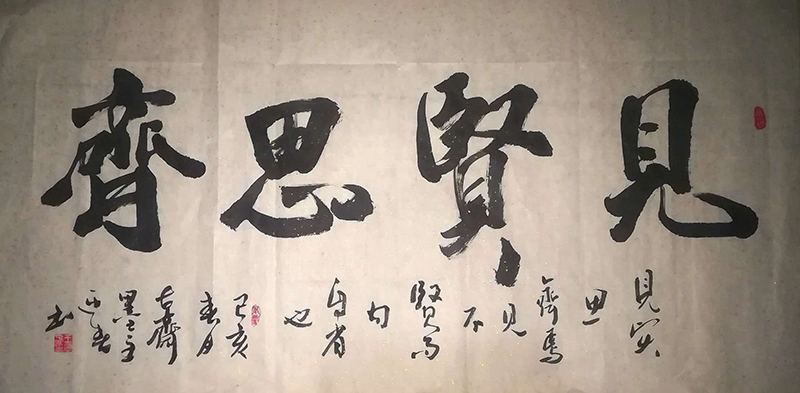 見賢思齊
見賢
思
齊焉
見
不
賢而
内
自省
也
己亥
春月
古齊
墨
書